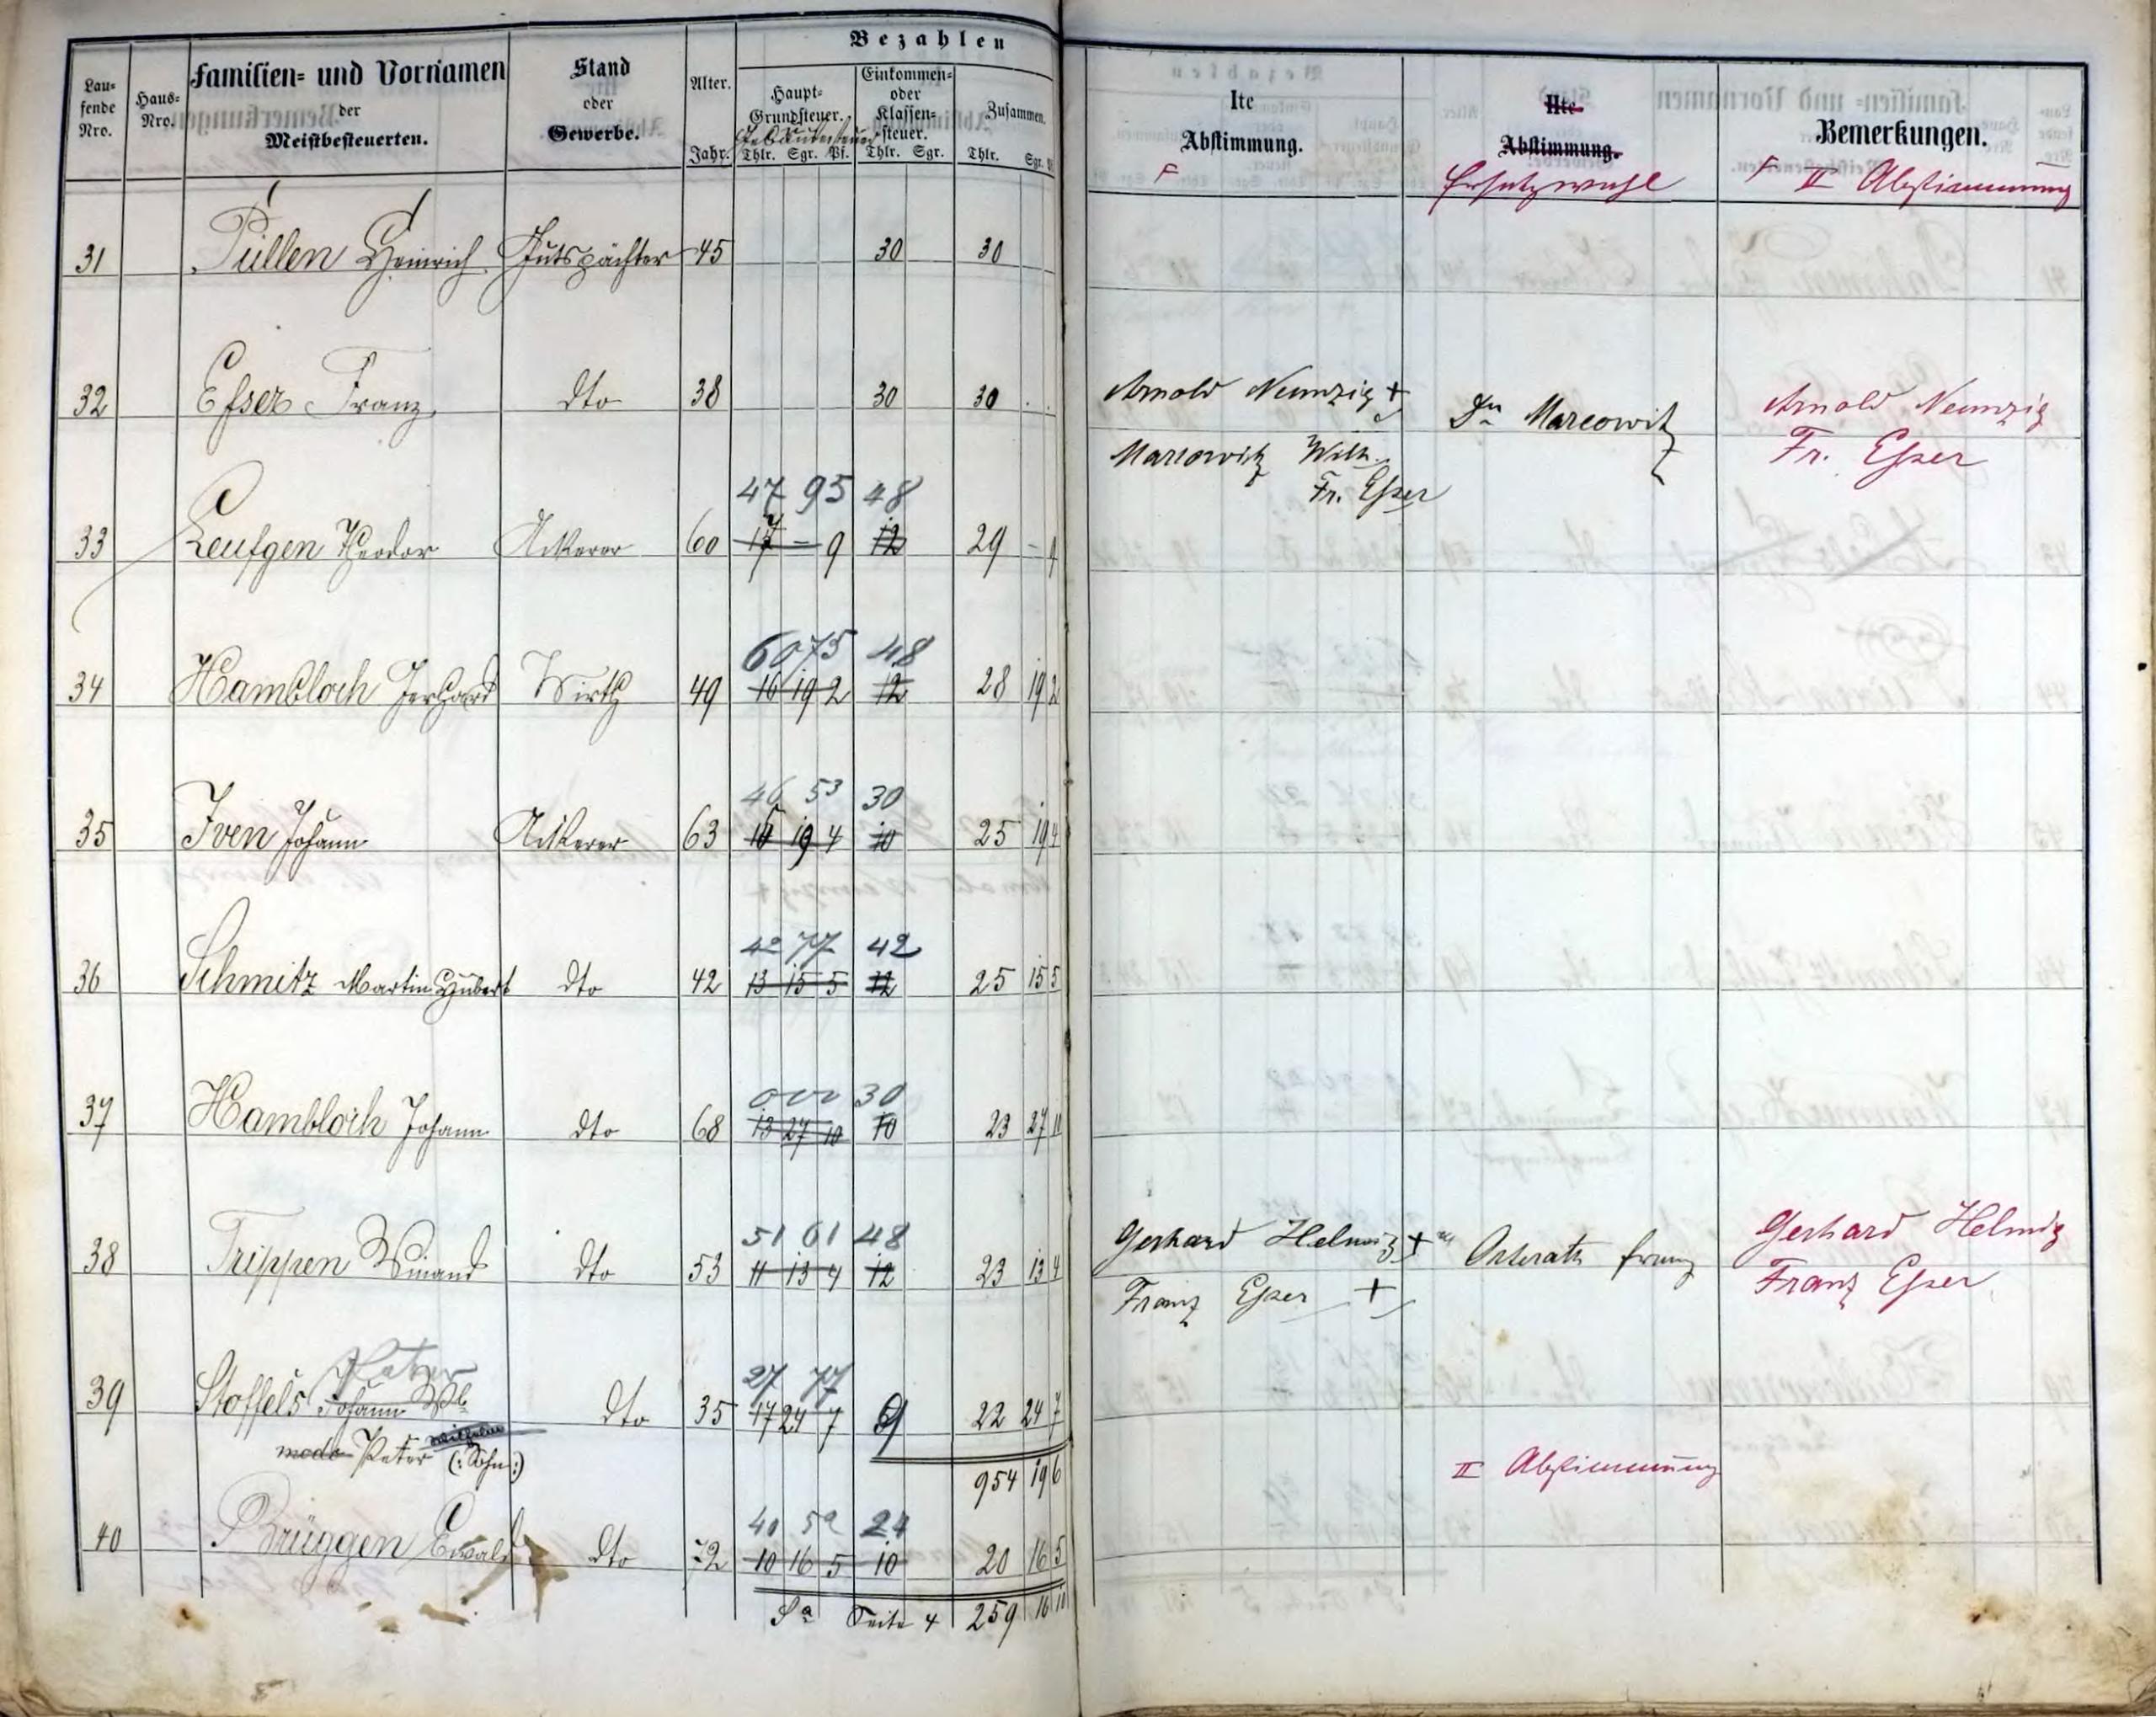 Bezahlen
Lau-
fende
Nro.
Haus-
Nro.
Familien- und Vornamen
der
Meistbesteuerten.
Stand
oder
Gewerbe.
Alter.
Jahr.
Haupt-
Grundsteuer.
Gebäudesteuer
Thlr. Sgr. Pf.
Einkommen-
oder
Klassen-
steuer.
Thlr. Sgr.
Zusammen.
Thlr. Sgr.
Ite
Abstimmung.
IIte
Abstimmung.
Ersatzwahl
Bemerkungen.
II Abstimmung
31 Püllen Heinrich Gutspächter 45 30 30
32 Esser Franz dto 38 30 30
Arnold Neunzig + Dr Marcowitz Arnold Neunzig
Marcowitz Wilh. Fr. Esser
Fr. Esser
47 95 48
33 Leufgen Theodor Ackerer 60 17 – 9 12 29 – 9
60 75 48
34 Hambloch Gerhard Wirth 49 16 19 2 12 28 19 2
46 53 30
35 Iven Johann Ackerer 63 15 19 4 10 25 19 4
42 77 42
36 Schmitz Martin Hubert dto 42 13 15 5 12 25 15 5
30
37 Hambloch Johann dto 68 13 27 10 10 23 27 11
51 61 48
38 Trippen Winand dto 53 11 13 4 12 23 13 4
Gerhard Helmig + Osterath Franz Gerhard Helmig
Franz Esser + Franz Esser
Peter
27 77
39 Stoffels Johann Wb dto 35 17 24 7 9 22 24 7
modo Peter Wilhelm (: Sohn :)
954 19 6
II Abstimmung
40 52 24
40 Brüggen Ewald dto 72 10 16 5 10 20 16 5
Sa Seite 4 259 16 11